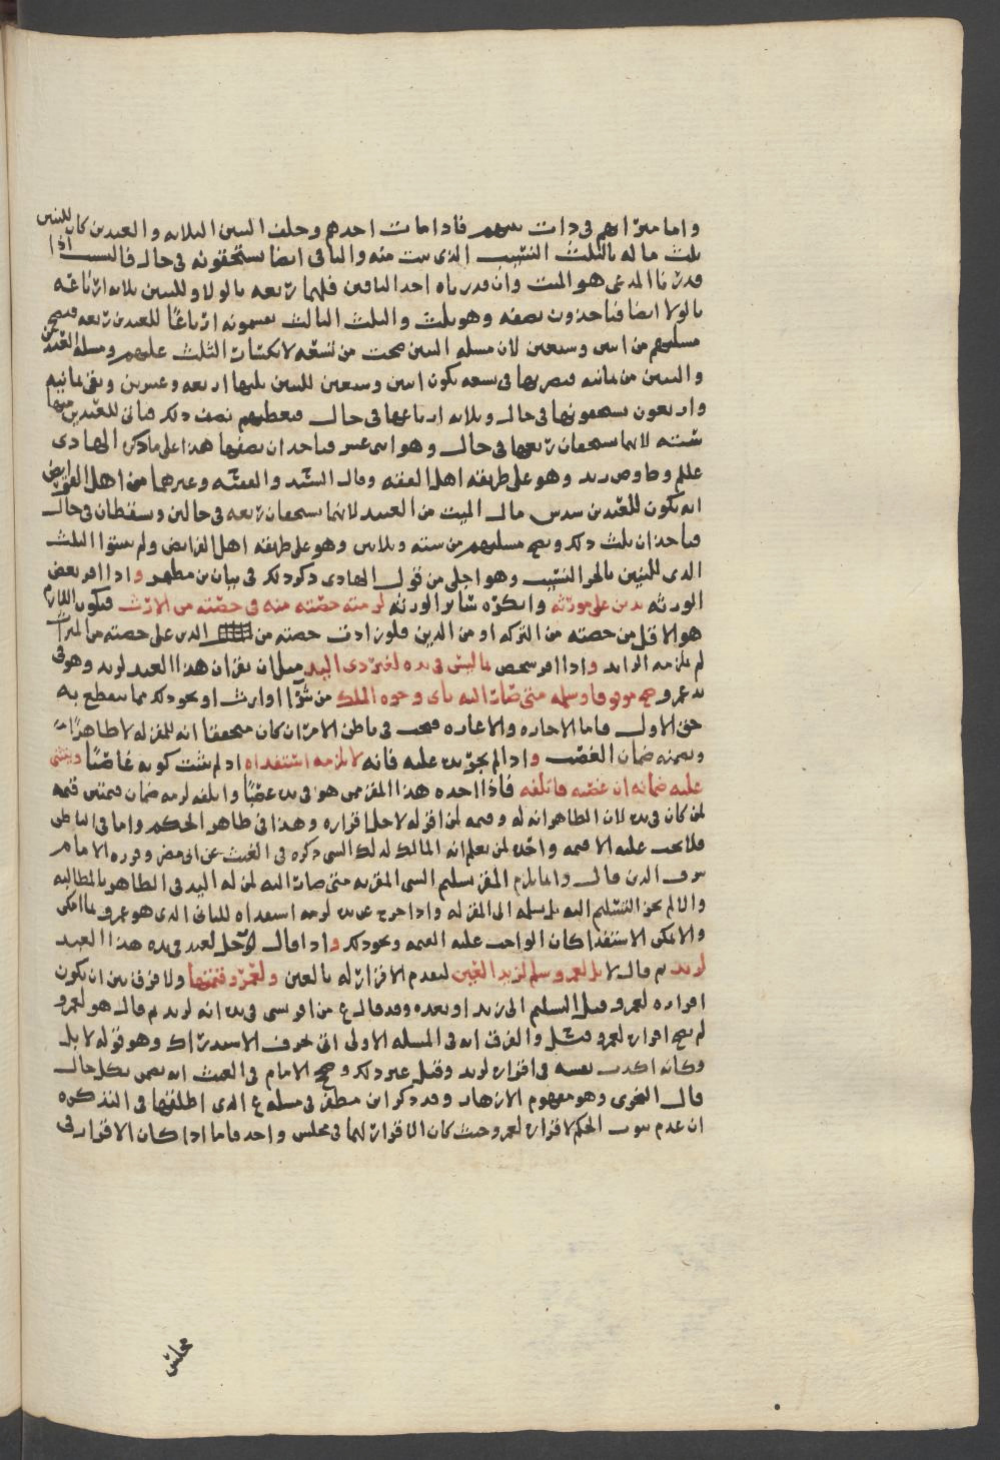 واما ميراثهم في ذات بينهم فاذا مات احدهم وخلف البنين الثلاثه والعبدين كان للبنين
ثلث ماله بالثلث النسيب الذي ثبت منه والباقي ايضا يستحقونه في حال فالنسب اذا
قدرنا المدعى هو الميت وان قدرناه احد الباقين فلهما ربعه بالولا وللبنين ثلاثه ارباعه
بالولا ايضا فياخذون نصفه وهو ثلث والثلث الثالث يقسمونه ارباعًا للعبدين ربعه فتصح
مسلتهم من اثنين وسبعين لان مسله البنين صحت من تسعه لانكسار الثلث عليهم ومسله العبدين
والبنين من ثمانيه فتضربها في تسعه يكون اثنين وسبعين للبنين ثلثها اربعه وعشرين وبقي ثمانيه
واربعون يستحقونها في حال وثلاثه ارباعها في حال فتعطيهم نصف ذلك فياتي للعبدين منها
سته لانهما يستحقان ربعها في حال وهو اثني عشر فياخذان نصفها هذا على ما ذكره الهادي
علم وهو على طريقه اهل الفقه وقال السيد والفقيه وغيرهما من اهل الفرايض
انه يكون للعبدين سدس مال الميت من العبيد لانهما يستحقان ربعه في حالين ويسقطان في حال
فياخذان ثلث ذلك وتصح مسلتهم من سته وثلاثين وهو على طريقه اهل الفرايض ولم يستووا الثلث
الذي للبنين بالحر النسيب وهو اجلى من قول الهادي ذكر ذلك في بيان بن مظفر واذا اقر بعض
الورثه بدين على مورثه وانكره سائر الورثه لزمته حصته منه في حصته من الارث فيكون اللازم
هو الاقل من حصته من التركه او من الدين فلو زادت حصته من الدين على حصته من الميراث
لم يلزمه الزايد واذا اقر شخص بما ليس في يده لغير ذي اليد مثل ان يقر ان هذا العبد لزيد وهو في
يد عمرو صح موقوفا وسلمه متى صار اليه باي وجوه الملك من شرآ او ارث او نحو ذلك مما ينقطع به
حق الاول فاما الاجاره والاعاره فيجب في باطن الامر ان كان متحققا انه للمقر له لا ظاهرًا
ويضمنه ضمان الغصب واذا لم يجز يده عليه فانه لا يلزمه استفداه اذ لم يثبت كونه غاصبًا ويثنى
عليه ضمانه ان غصبه فاتلفه فاذا اخذه هذا المقر ممن هو في يده غصبًا واتلفه لزمه ضمان قيمتين قيمه
لمن كان في يده لان الظاهر انه له وقيمه لمن اقر له لاجل اقراره وهذا في ظاهر الحكم واما في الباطن
فلا يجب عليه الا قيمه واحده لمن يعلم انه المالك لذلك الشي ذكره في الغيث عن ابي مضر وقرره الامام
شرف الدين قال وانما يلزم المقر تسليم الشي المقر به متى صار اليه لمن له اليد في الظاهر بالمطالبه
والا لم يجز التسليم اليه بل يسلمه الى المقر له واذا خرج عن يده لزمه استفداه للثاني الذي هو عمرو بما امكن
والا يمكن الاستفدا كان الواجب عليه القيمه ونحو ذلك واذا قال رجل لعبد في يده هذا العبد
لزيد ثم قال لا بل لعمرو سلم لزيد العين لتقدم الاقرار له بالعين ولعمرو قيمتها ولا فرق بين ان يكون
اقراره لعمرو قبل التسليم الى زيد او بعده وقد قال ع من اقر بشي في يده انه لزيد ثم قال هو لعمرو
لم يصح اقراره لعمرو والفرق انه في المسله الاولى اتى بحرف الاستدراك وهو قوله لا بل
وكانه اكذب نفسه في اقراره لزيد وقيل غير ذلك وصحح الامام في الغيث انه يضمن بكل حال
قال النجري وهو مفهوم الازهار وقد ذكر ابن مظفر في مسله ع الذي اطلقها في التذكره
ان عدم ثبوت الحكم لاقراره لعمرو حيث كان الاقرار لهما في مجلس واحد فاما اذا كان الاقرار في
مجلس